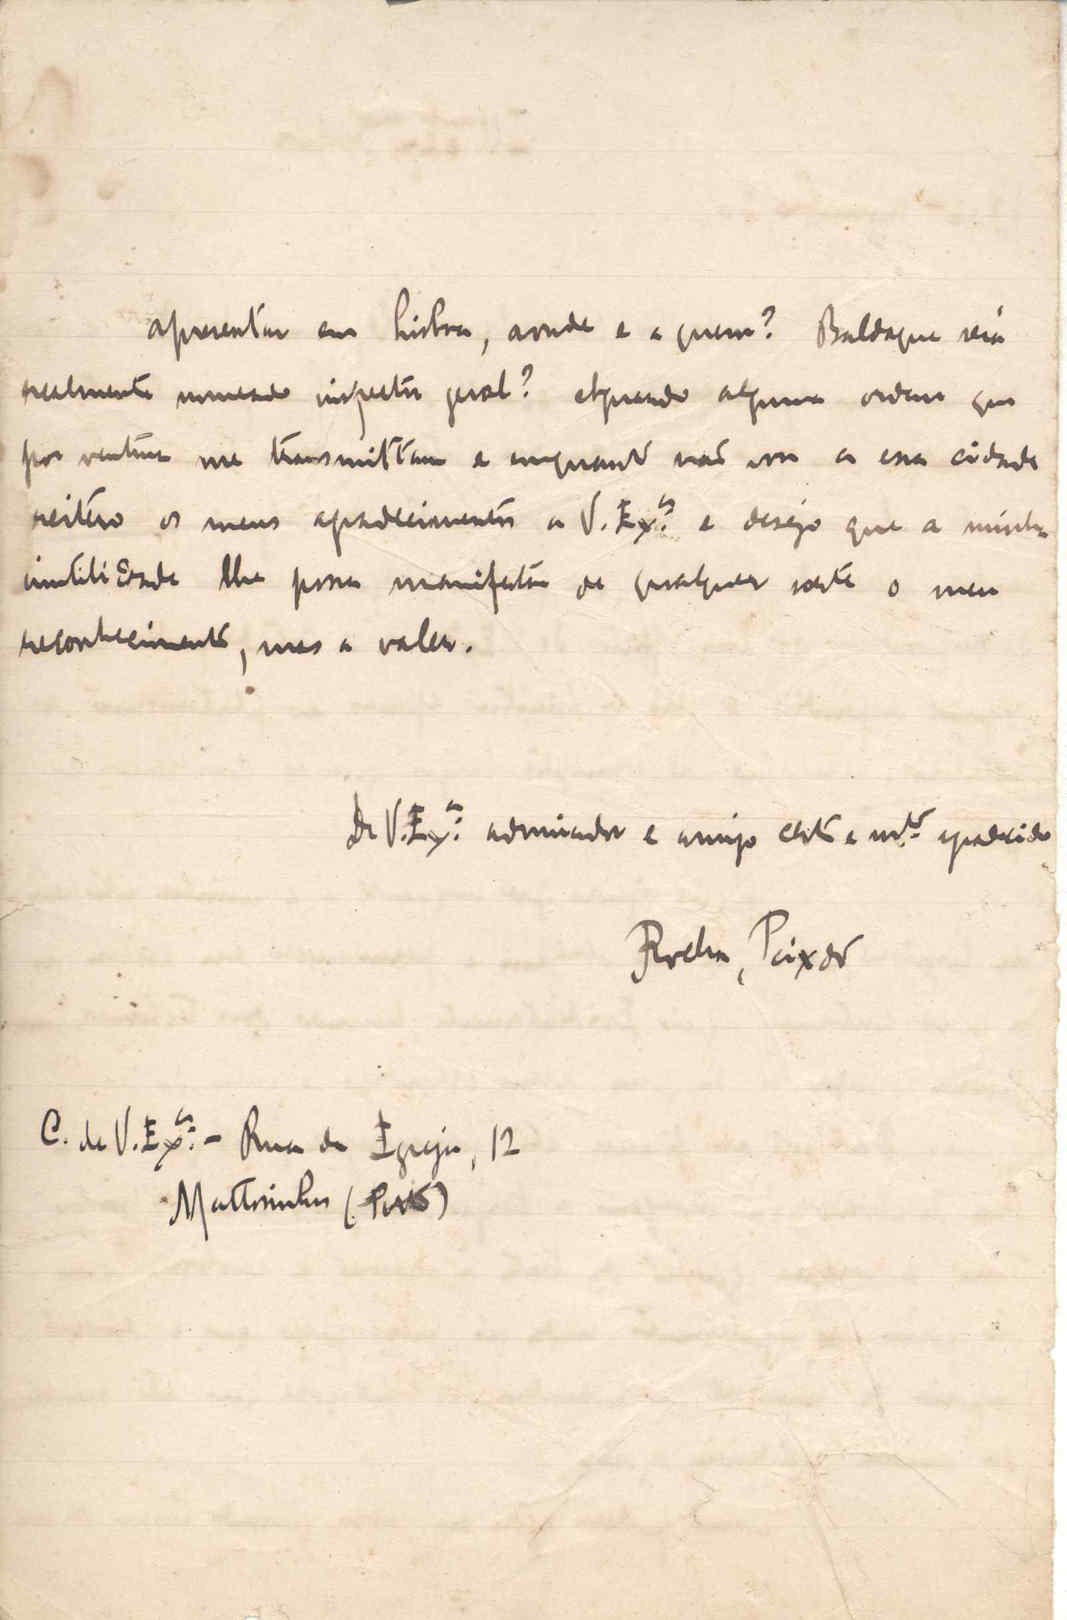 apresentar em Lisboa, aonde e a quem? Baldaque será
realmente nomeado inspector geral? Aguardo alguma ordem que
por ventura me transmittam e emquanto não vou a essa cidade
reitero os meus agradecimentos a V. Ex.ª e desejo que a minha
inutilidade lhe possa manifestar de qualquer sorte o meu
reconhecimento, mas a valer.
De V. Ex.ª admirador e amigo certo e m.to agradecido
Rocha Peixoto
C. de V. Ex.ª - Rua da Egreja, 12
Mattosinhos (Porto)